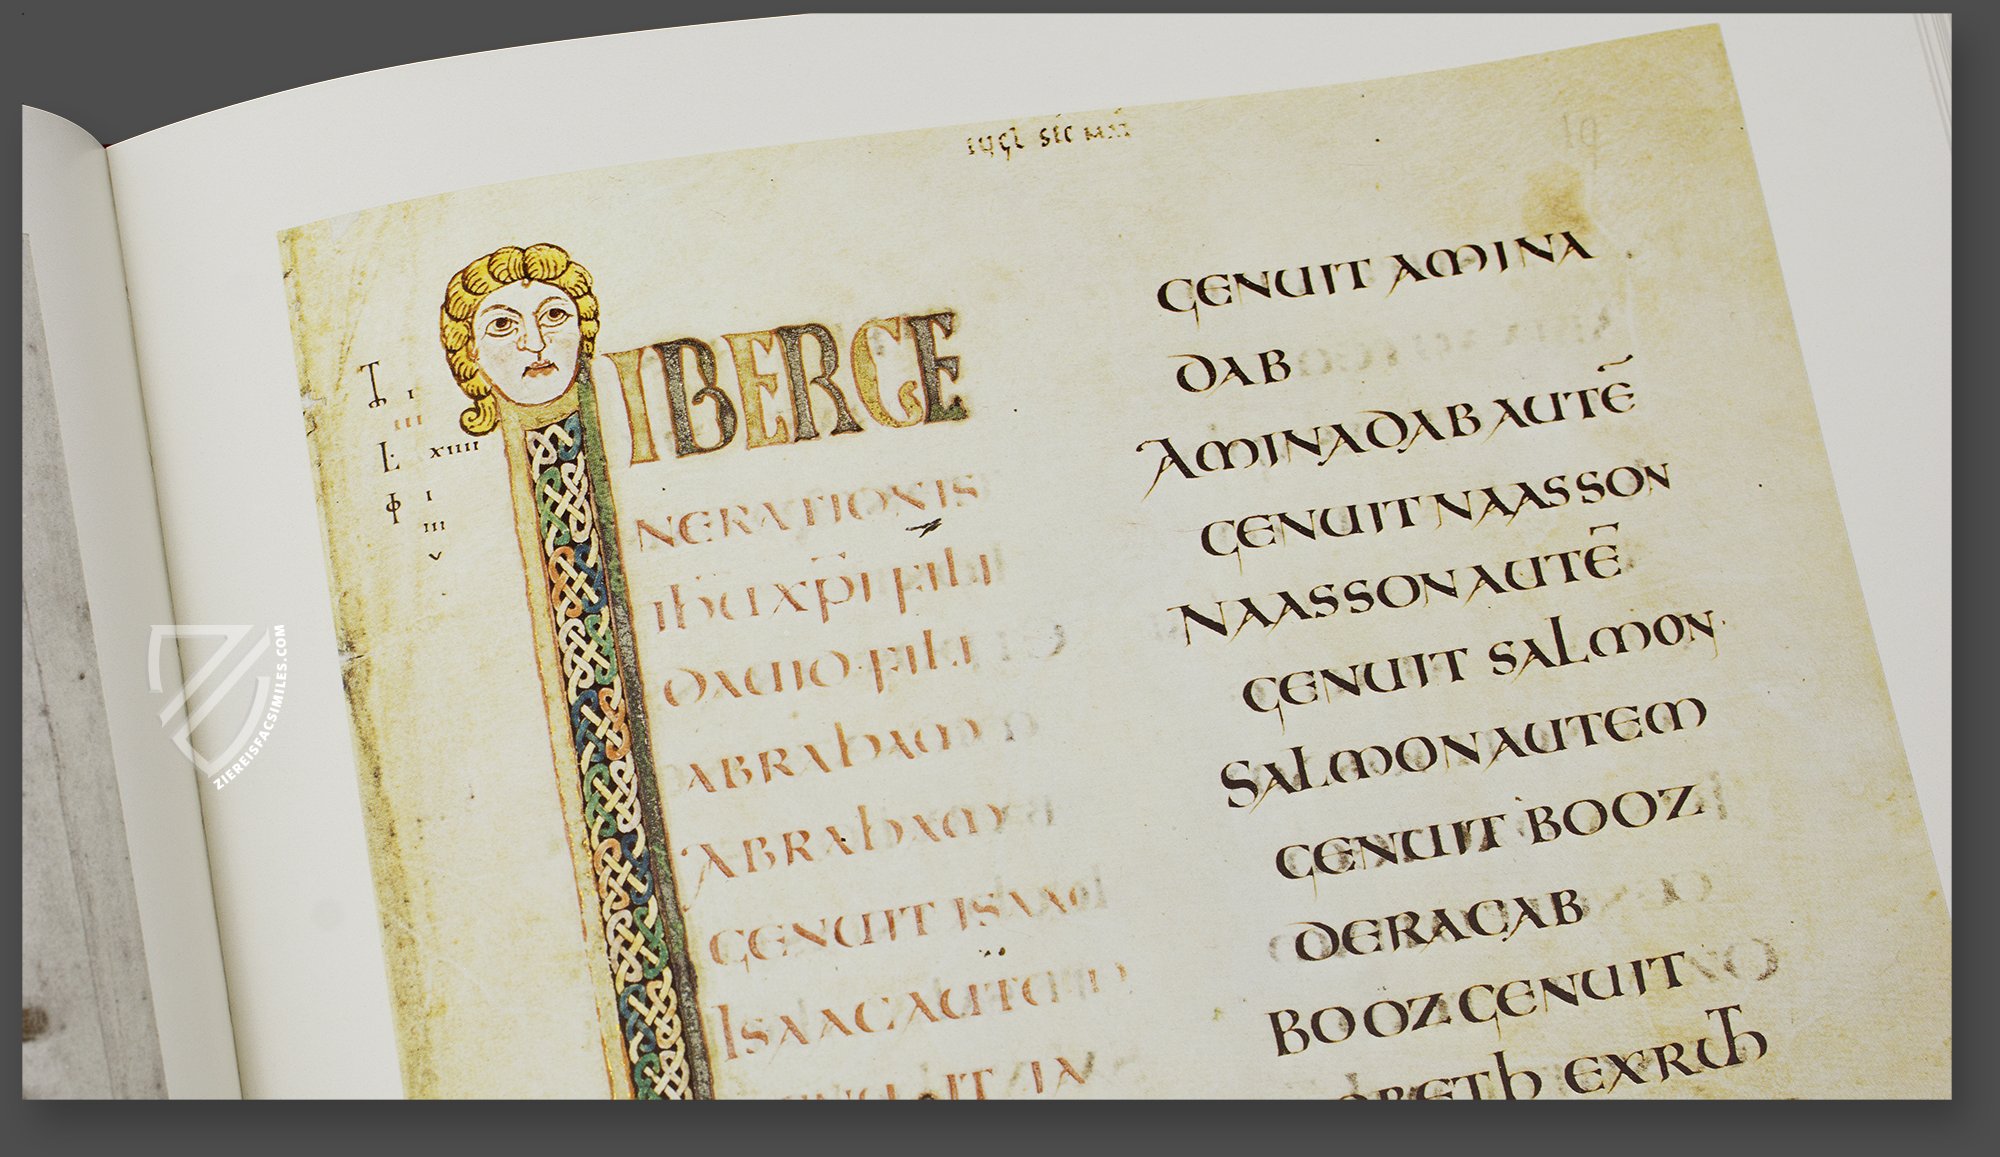 19
T I
III
L XIIII
Φ I
III
V
LIBERGE
NERATIONIS
IhU XPI FILI
DAUID FILI
AbRAhAM
AbRAhAM
GENUIT ISAAC
ISAACAUTEM
GENUIT IA
GENUIT AMINA
DAB
AMINADAB AUTẼ
GENUIT NAASSON
NAASSON AUTẼ
GENUIT SALMON
SALMON AUTEM
GENUIT BOOZ
DERACAB
BOOZ GENUIT
OBETh EXRUTh
ZIEREISFACSIMILES.COM